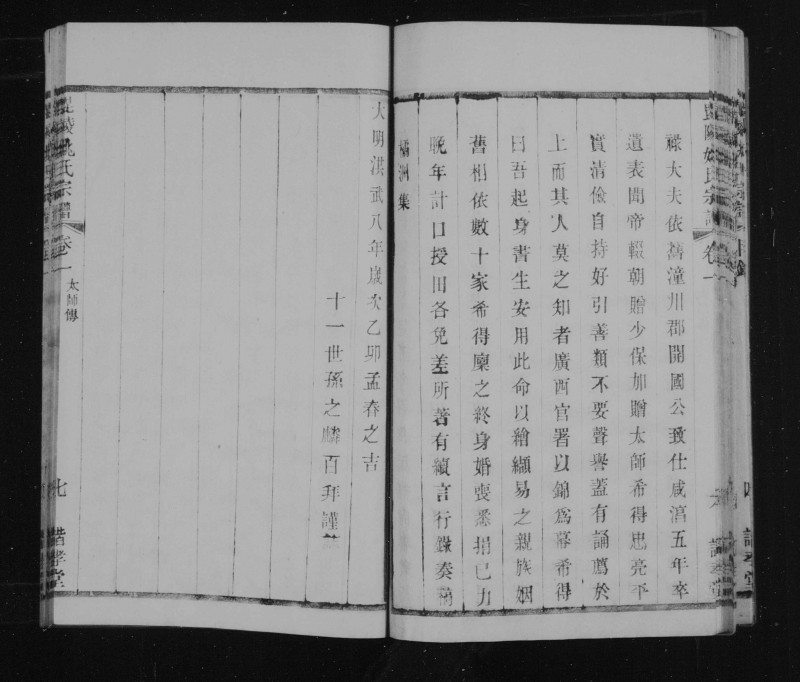 祿大夫依舊潼川郡開國公致仕咸淳五年卒
遺表聞帝輟朝贈少保加贈太師希得忠亮平
實清儉自持好引善類不要聲譽蓋有誦薦於
上而其人莫之知者廣西官署以錦爲幕希得
曰吾起身書生安用此命以繒纈易之親族姻
舊相依數十家希得廩之終身婚喪悉捐己力
晚年計口授田各免差所著有續言行錄奏稿
橘洲集
大明洪武八年歲次乙卯孟春之吉
十一世孫之麟百拜謹誌
毘陵姚氏宗譜 卷一
太師傳
七